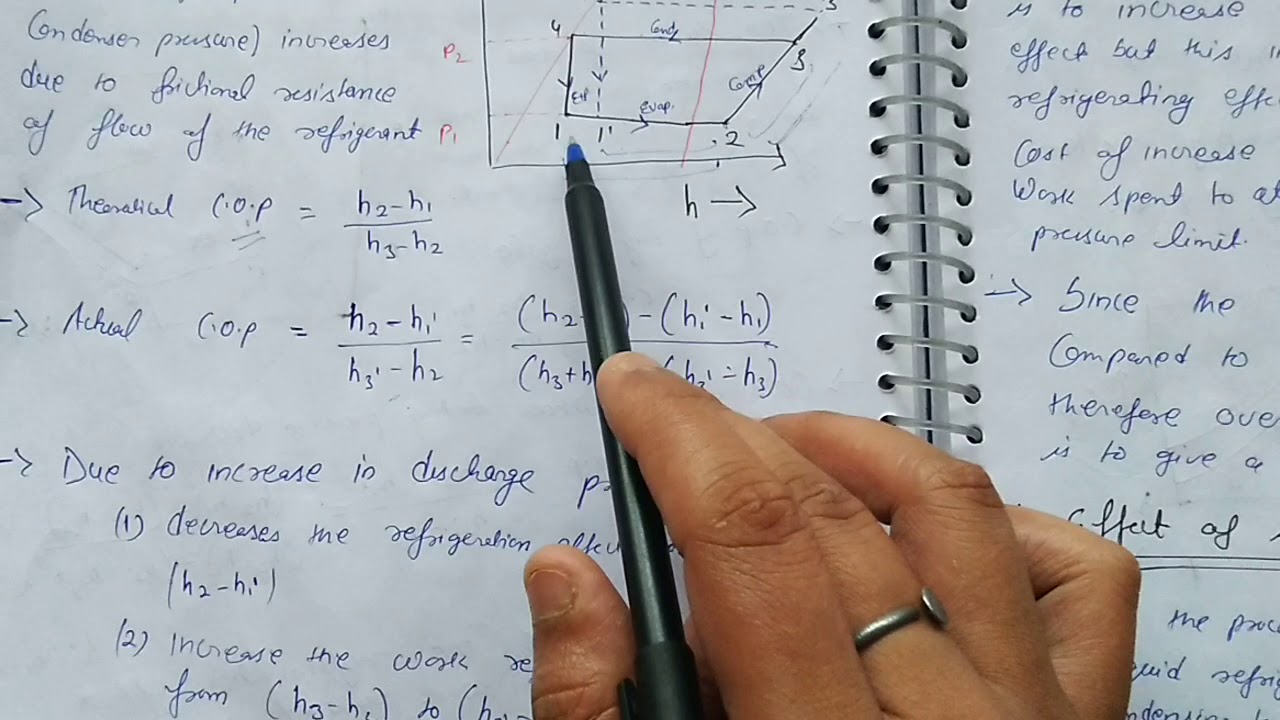 Condenser pressure) increases
due to frictional resistance
of flow of the refrigerant
P2
P1
4
Cond
3
3'
Exp
Comp
evap.
1
1'
2
h →
→ Theoretical C.O.P = h2-h1 / h3-h2
→ Actual C.O.P = h2-h1' / h3'-h2 = (h2- ) - (h1'-h1) / (h3+h (h3'-h3)
→ Due to increase in discharge
(1) decreases the refrigeration effect
(h2-h1')
(2) Increase the work
from (h3-h1) to (h3
is to increase
effect but this
refrigerating
Cost of increase
Work spent to
pressure limit.
→ Since the
Compared to
therefore
is to give a
Effect of
the